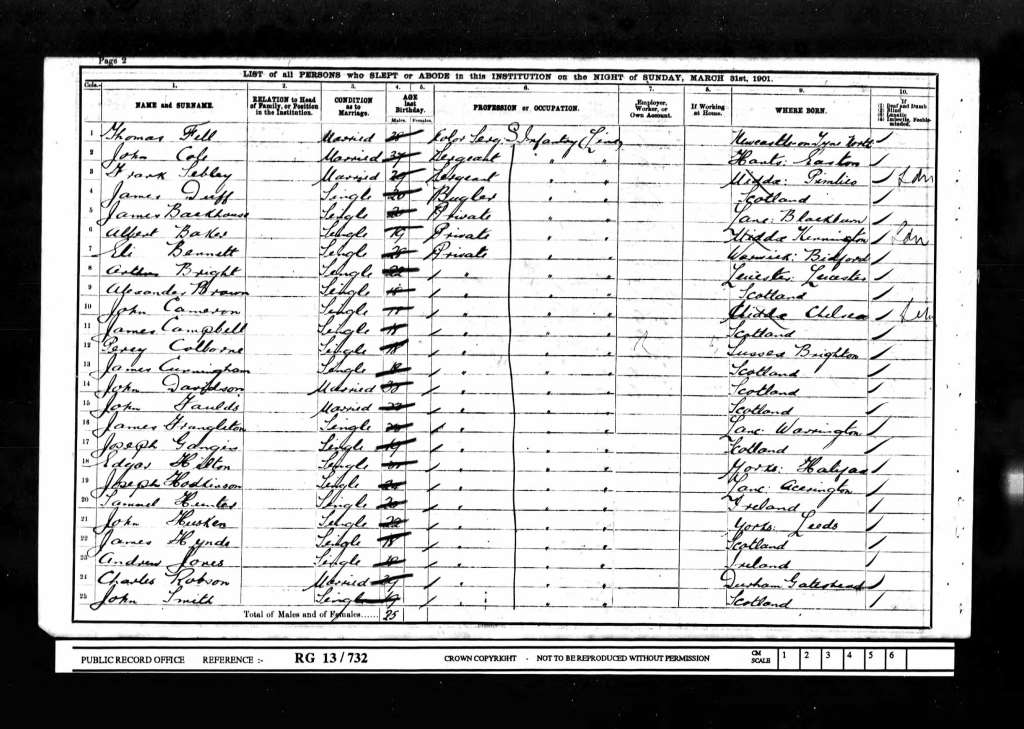 Page 2
LIST of all PERSONS who SLEPT or ABODE in this INSTITUTION on the NIGHT of SUNDAY, MARCH 31st, 1901.
Cols.— 1. 2. 3. 4. 5. 6. 7. 8. 9. 10.
NAME and SURNAME. RELATION to Head of Family, or Position in the Institution. CONDITION as to Marriage. AGE last Birthday. Males. Females. PROFESSION or OCCUPATION. Employer, Worker, or Own Account. If Working at Home. WHERE BORN. If (1) Deaf and Dumb (2) Blind (3) Lunatic (4) Imbecile, Feeble-minded.
1 Thomas Fell Married 28 Color Serg: Infantry (Line) Newcastle on Tyne
2 John Cole Married Sergeant " " Hants: Easton
3 Frank Sebley Married 29 Sergeant " " Middx: Pimlico
4 James Duff Single 20 Bugler " " Scotland
5 James Backhouse Single 20 Private " Lanc: Blackburn
6 Albert Baker Single 19 Private " " Middx Kennington
7 Eli Bennett Single Private " " Warwick: Bidford
8 Arthur Bright Single " " " Leicester: Leicester
9 Alexander Brown Single " " Scotland
10 John Cameron Single " " Middx Chelsea
11 James Campbell Single " " " Scotland
12 Percy Colborne Single 18 " " Sussex Brighton
13 James Cunningham Single " " Scotland
14 John Davidson Married " " Scotland
15 John Faulds Married " " Scotland
16 James Frangleton Single " " Lanc: Warrington
17 Joseph Single 19 " " Scotland
18 Edgar Hilton Single " " Yorks: Halifax
19 Joseph Hodkinson Single " " Lanc: Accrington
20 Samuel Hunter Single 20 " " Ireland
21 John Single " " Yorks: Leeds
22 James Hynds Single " " Scotland
23 Andrew Jones Single " " Ireland
24 Charles Robson Married " " Durham Gateshead
25 John Smith Single 19 " " Scotland
Total of Males and of Females...... 25
PUBLIC RECORD OFFICE REFERENCE :- RG 13/732 CROWN COPYRIGHT - NOT TO BE REPRODUCED WITHOUT PERMISSION CM SCALE 1 2 3 4 5 6